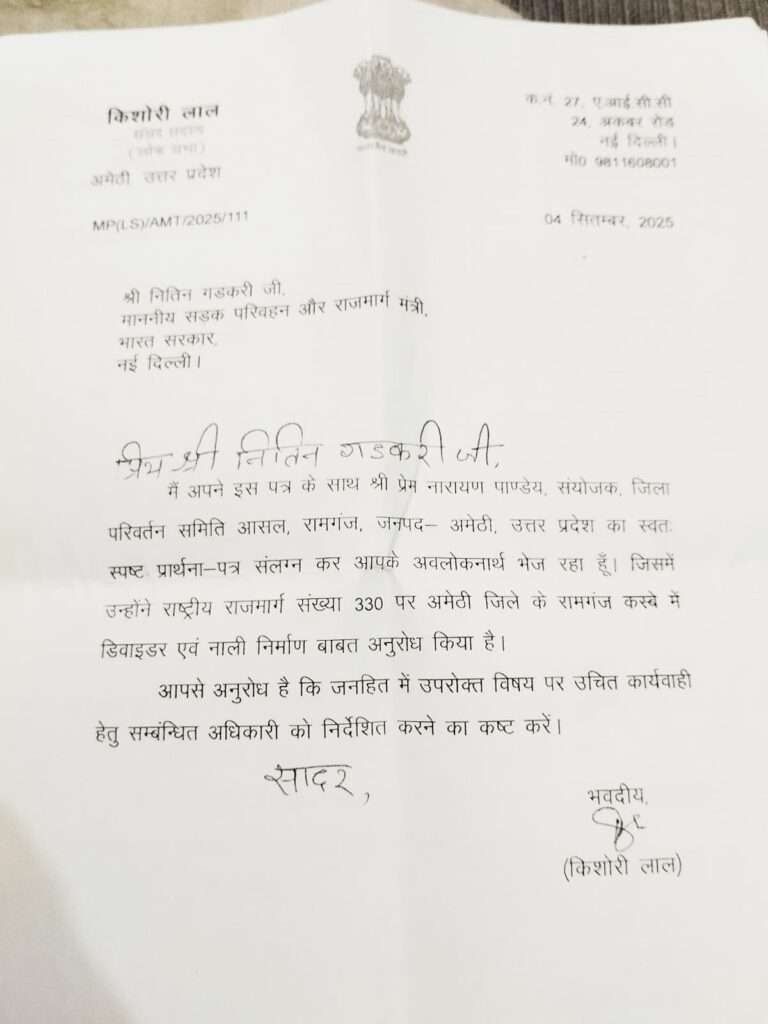 किशोरी लाल
संसद सदस्य
(लोक सभा)
अमेठी, उत्तर प्रदेश
MP(LS)/AMT/2025/111
क.नं. 27, ए.आई.सी.सी
24, अकबर रोड
नई दिल्ली।
मो0 9811608001
04 सितम्बर, 2025
श्री नितिन गडकरी जी,
माननीय सड़क परिवहन और राजमार्ग मंत्री,
भारत सरकार,
नई दिल्ली।
प्रिय श्री नितिन गडकरी जी,
मैं अपने इस पत्र के साथ श्री प्रेम नारायण पाण्डेय, संयोजक, जिला
परिवर्तन समिति आसल, रामगंज, जनपद– अमेठी, उत्तर प्रदेश का स्वतः
स्पष्ट प्रार्थना–पत्र संलग्न कर आपके अवलोकनार्थ भेज रहा हूँ। जिसमें
उन्होंने राष्ट्रीय राजमार्ग संख्या 330 पर अमेठी जिले के रामगंज कस्बे में
डिवाइडर एवं नाली निर्माण बाबत अनुरोध किया है।
आपसे अनुरोध है कि जनहित में उपरोक्त विषय पर उचित कार्यवाही
हेतु सम्बंन्धित अधिकारी को निर्देशित करने का कष्ट करें।
सादर,
भवदीय,
(किशोरी लाल)